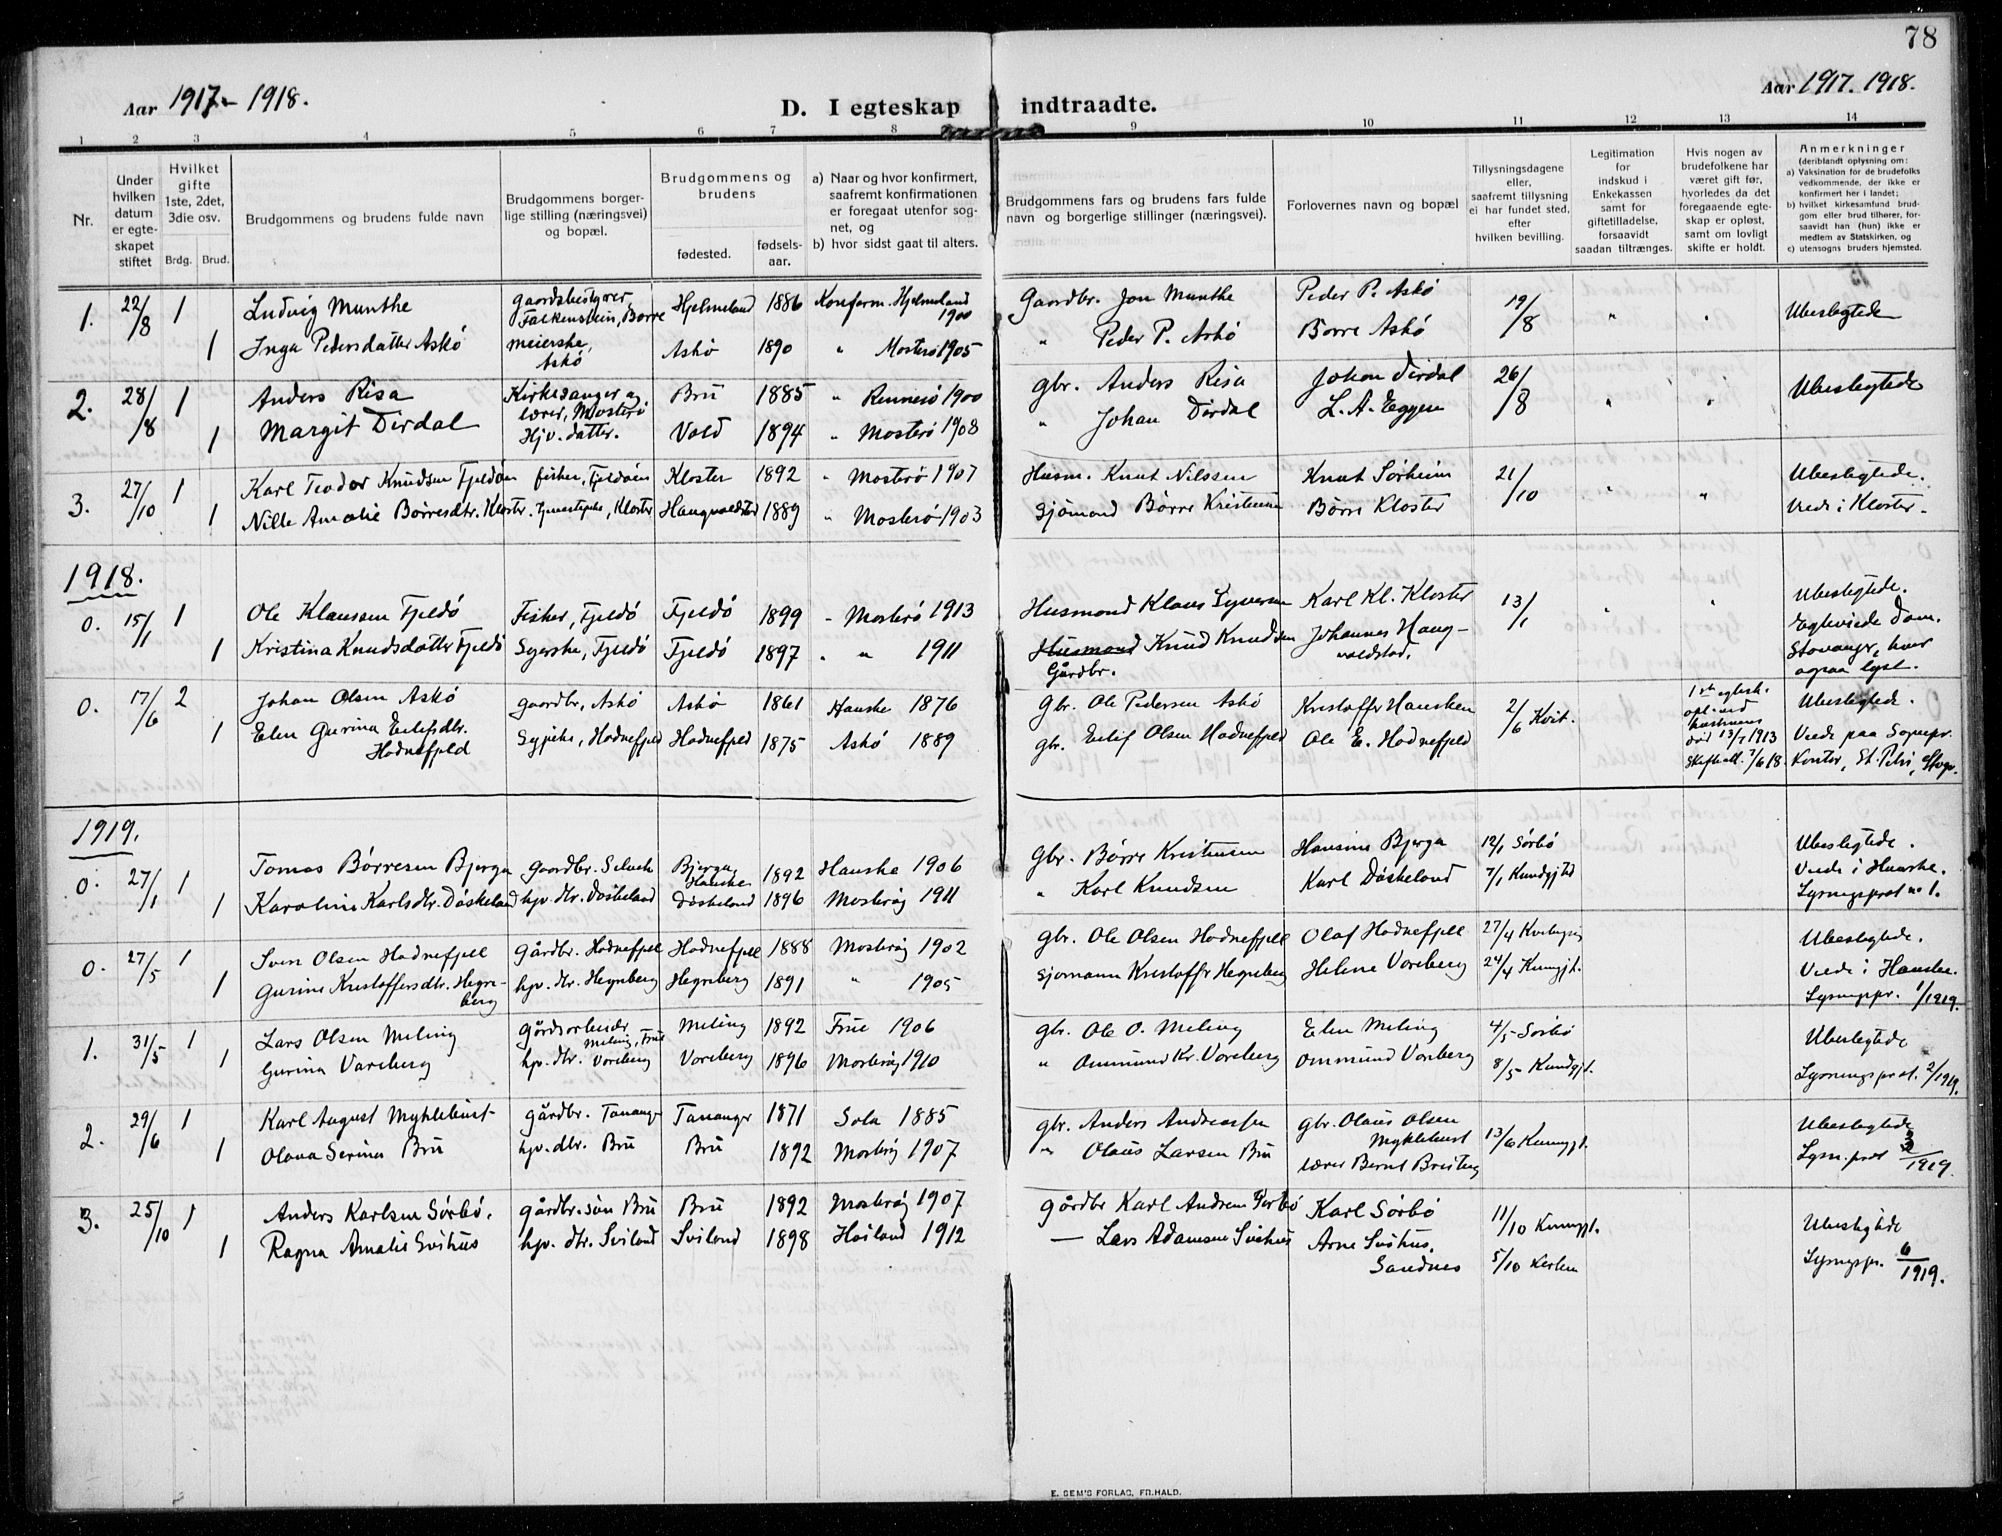 78
Aar 1917 - 1918.
D. I egteskap indtraadte.
Aar 1917. 1918.
1 2 3 4 5 6 7 8 9 10 11 12 13 14
Nr.
Under hvilken datum er egteskapet stiftet
Hvilket gifte 1ste, 2det, 3die osv.
Brdg. Brud.
Brudgommens og brudens fulde navn
Brudgommens borgerlige stilling (næringsvei) og bopæl.
Brudgommens og brudens
fødested.
fødselsaar.
a) Naar og hvor konfirmert, saafremt konfirmationen er foregaat utenfor sognet, og
b) hvor sidst gaat til alters.
Brudgommens fars og brudens fars fulde navn og borgerlige stillinger (næringsvei).
Forlovernes navn og bopæl
Tillysningsdagene eller, saafremt tillysning ei har fundet sted, efter hvilken bevilling.
Legitimation for indskud i Enkekassen samt for giftetilladelse, forsaavidt saadan tiltrænges.
Hvis nogen av brudefolkene har været gift før, hvorledes da det foregaaende egteskap er opløst, samt om lovligt skifte er holdt.
Anmerkninger
(deriblandt oplysning om:
a) Vaksination for de brudefolks vedkommende, der ikke er konfirmert her i landet;
b) hvilket kirkesamfund brudgom eller brud tilhører, forsaavidt han (hun) ikke er medlem av Statskirken, og
c) utensogns bruders hjemsted.
1. 22/8 1 Ludvig Munthe gaardsbestyrer, Falkenstein, Borre Hjelmeland 1886 Konfirm. Hjelmeland 1900 Gaardbr. Jon Munthe Peder P. Askö 19/8 " " Ubeslegtede
1 Inga Pedersdatter Askö meierske, Askö Askö 1890 " Mosterö 1905 " Peder P. Askö Börre Askö
2. 28/8 1 Anders Risa Kirkesanger og lærer, Mosterö Bru 1885 " Rennesö 1900 gbr. Anders Risa Johan Dirdal 26/8 " " Ubeslegtede
1 Margit Dirdal Hjv. datter. Vold 1894 " Mosterö 1908 " Johan Dirdal L. A. Eggen
3. 27/10 1 Karl Teodor Knudsen Fjeldöen fisker, Fjeldöen Kloster 1892 " Mosterö 1907 Husm. Knut Nilssen Knut Sörheim 21/10 " " Ubeslegtede.
1 Nille Amalie Börresdtr. Kloster. Tjenestepike, Kloster Haugvaldstad 1889 " Mosterö 1903 Sjömand Börre Kristensen Börre Kloster Viede i Kloster.
1918.
0. 15/1 1 Ole Klaussen Fjeldö Fisker, Fjeldö Fjeldö 1899 " Mosterö 1913 Husmand Klaus Syversen Karl Kl. Kloster 13/1 " " Ubeslegtede.
1 Kristina Knudsdatter Fjeldö Syerske, Fjeldö Fjeldö 1897 " " 1911 Husmand Knud Knudsen Gårdbr. Johannes Haugvaldstad. Egteviede Dom. Stavanger, hvor ogsaa lyst.
0. 17/6 2 Johan Olsen Askö gaardbr., Askö Askö 1861 Hauske 1876 Gbr. Ole Pedersen Askö Kristoffer Hausken 2/6 Kvit. 1ste egtesk. opl. ved hustruens död 13/7 1913 Skifteatt. 7/6 18. Ubeslegtede.
1 Elen Gurina Eilefsdtr. Hodnefjeld Sypike, Hodnefjeld Hodnefjeld 1875 Askö 1889 gbr. Eilif Olsen Hodnefjeld Ole E. Hodnefjeld Viede paa Sognepr. Kontor, St. Petri, Stvgr.
1919.
0. 27/1 1 Tomas Börresen Bjerga gaardbr. Bjerga Hauske 1892 Hauske 1906 Gbr. Börre Kristensen Hansine Bjerga 12/1 Sörbö Ubeslegtede.
1 Karoline Karlsdtr. Döskeland hjv. dtr. Döskeland Döskeland 1896 Mosteröy 1911 " Karl Knudsen Karl Döskeland 7/1 Kundgjted Viede i Hauske. Lysningsprot no 1.
0. 27/5 1 Sven Olsen Hodnefjell gårdbr. Hodnefjell Hodnefjell 1888 Mosteröy 1902 gbr. Ole Olsen Hodnefjell Olaf Hodnefjell 27/4 Ubeslegtede.
1 Gurine Kristoffersdtr. Hegreberg hjv. dtr. Hegreberg Hegreberg 1891 " 1905 sjömann Kristoffer Hegreberg Helene Voreberg 24/4 Kungjt. Viede i Hauske. Lysningspr. 1/1919.
1. 31/5 1 Lars Olsen Meling gårdsarbeider Meling, Frue Meling 1892 Frue 1906 gbr. Ole O. Meling Elen Meling 4/5 Sörbö Ubeslegtede
1 Gurina Vareberg hjv. dtr. Voreberg Voreberg 1896 Mosteröy 1910 " Ommund Kr. Voreberg Ommund Voreberg 8/5 Kundgjt. Lysningsprot. 2/1919.
2. 29/6 1 Karl August Myklebust gårdbr. Tananger Tananger 1871 Sola 1885 gbr. Anders Andreassen gbr. Olaus Olsen Myklebust 13/6 Kunngjt. Ubeslegtede
1 Olava Serina Bru hjv. dtr. Bru Bru 1892 Mosteröy 1907 " Olaus Larsen Bru lærer Bernt Breiteig Lysn. prot 3/1919.
3. 25/10 1 Anders Karlsen Sörbö. gårdbr. sön Bru Bru 1892 Mosteröy 1907 gårdbr Karl Andreas Sörbö Karl Sörbö 11/10 Kunngjt. Ubeslegtede
1 Ragna Amalie Svihus hjv. dtr. Sviland Sviland 1898 Höiland 1912 — Lars Adamsen Svihus Arne Svihus. Sandnes 5/10 Lysningspr. 6/1919.
E. SEM'S FORLAG, FR.HALD.